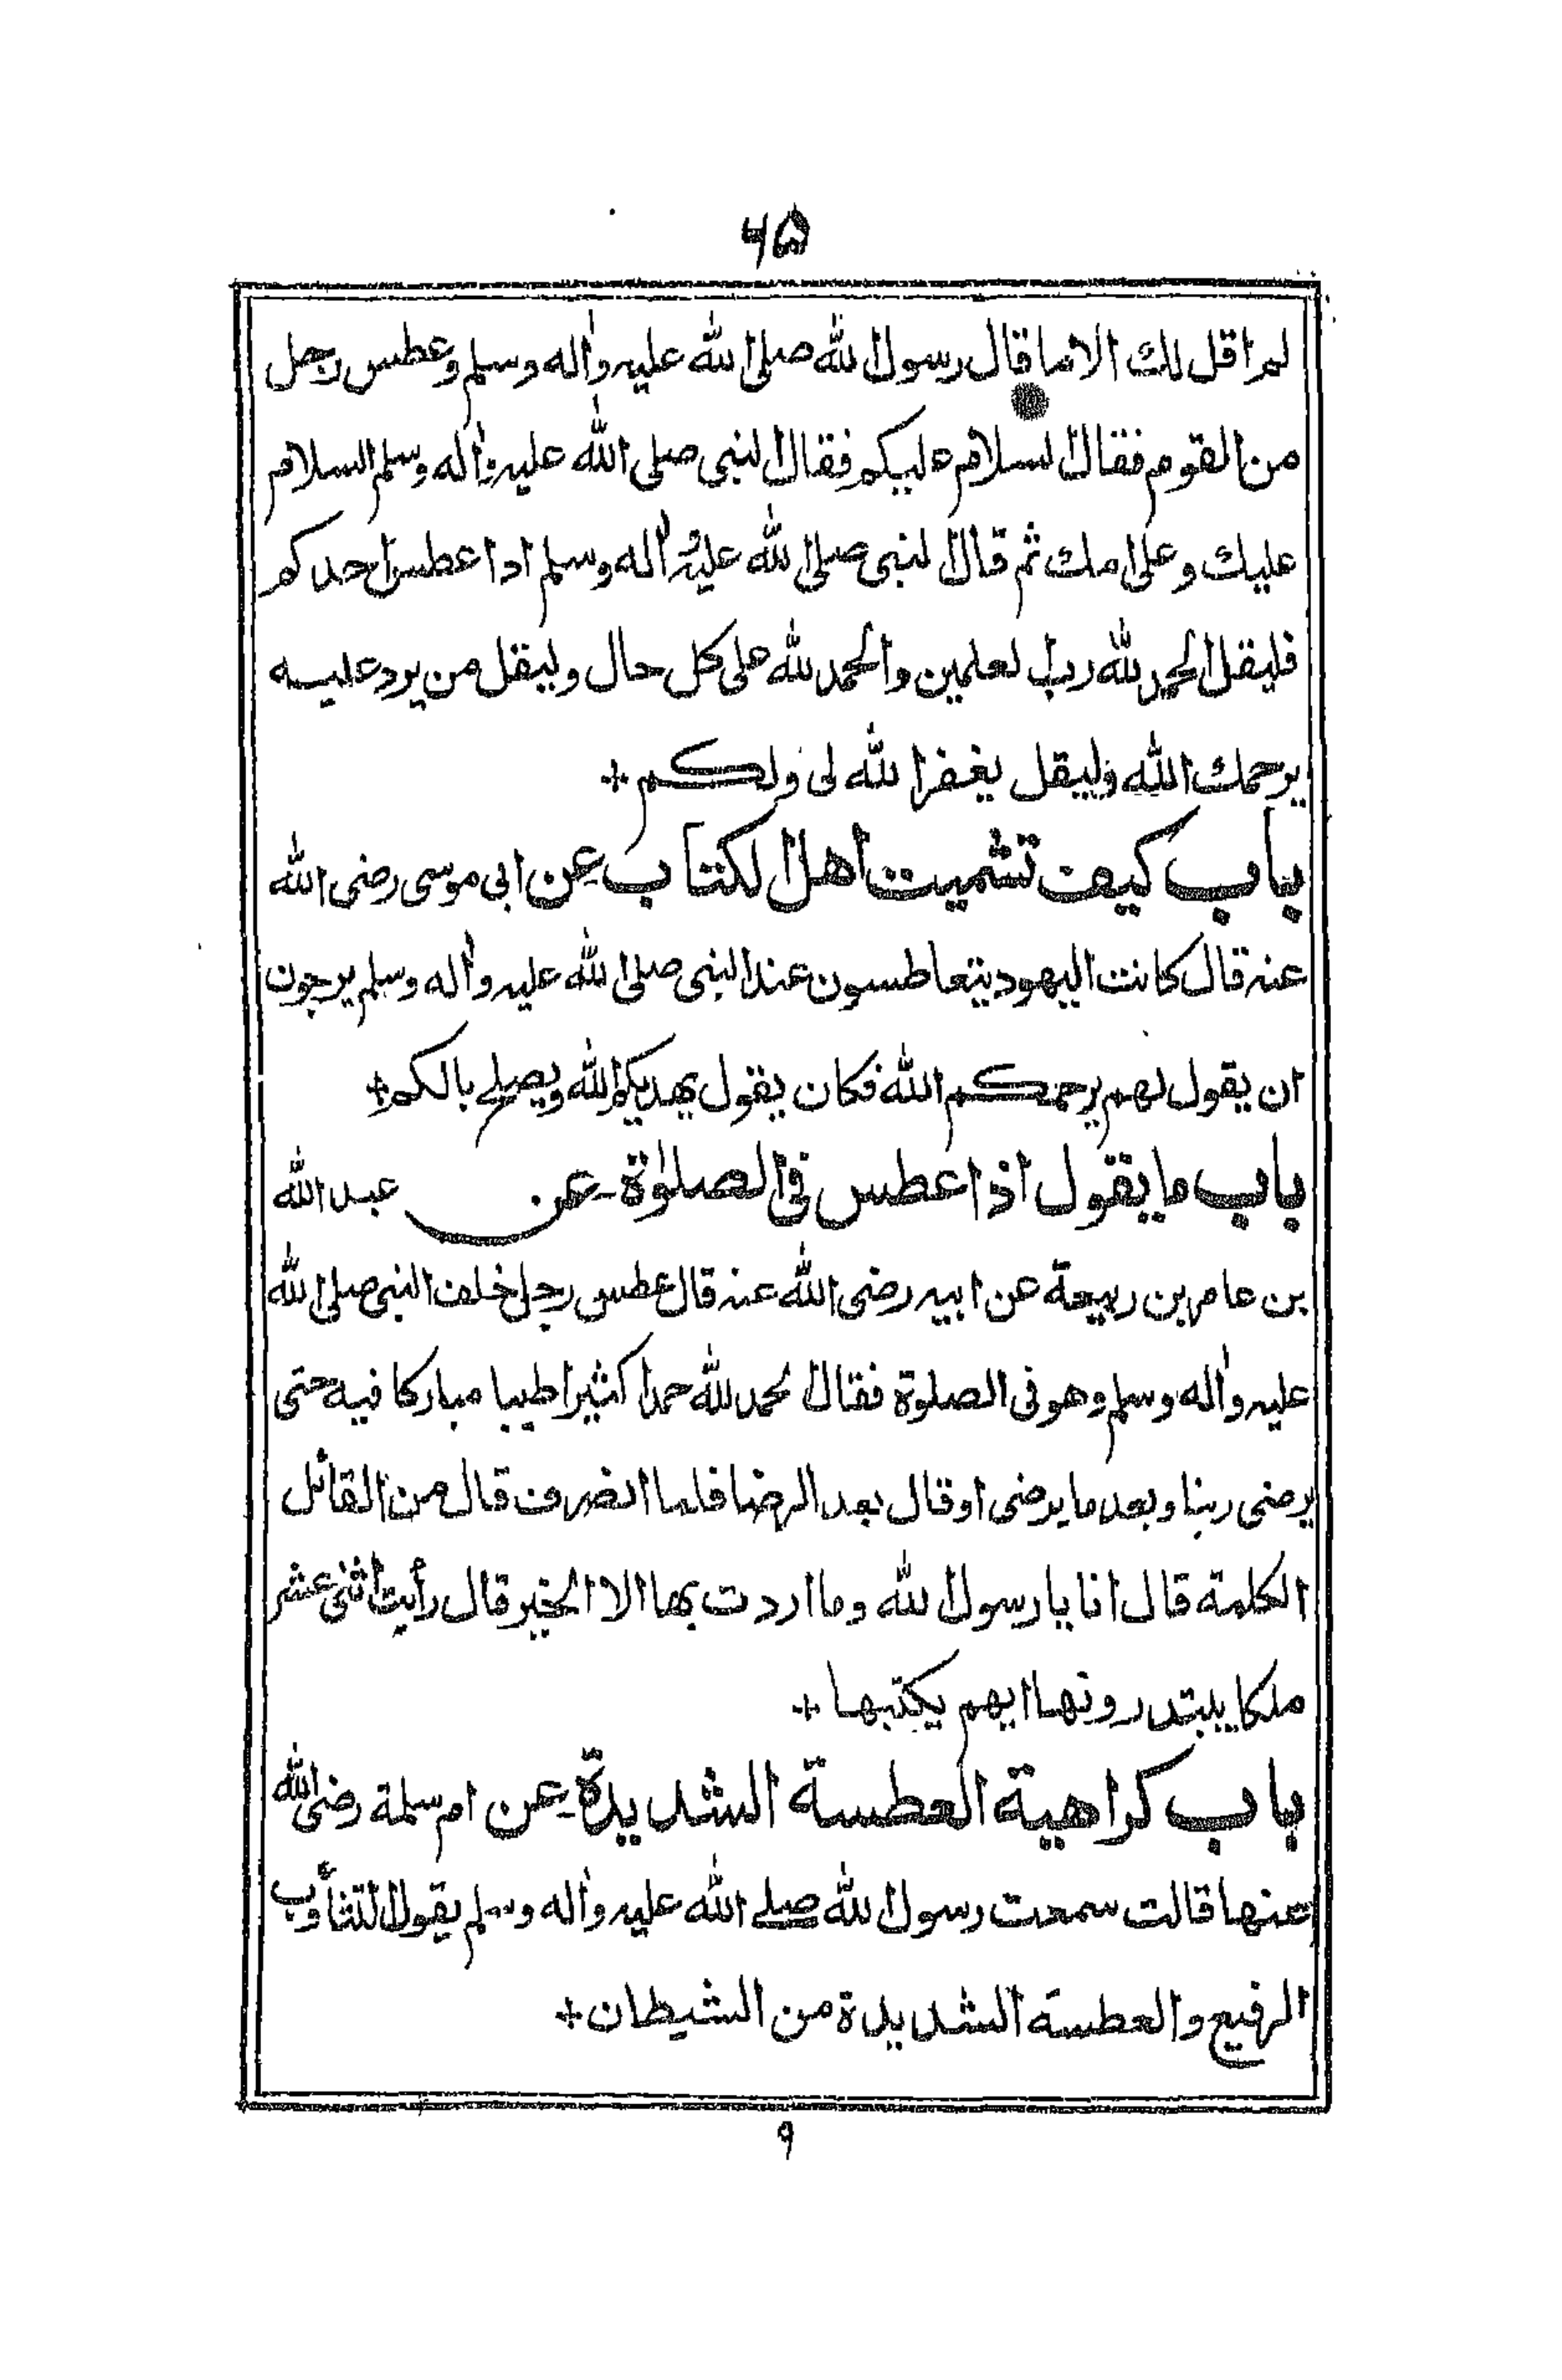 ۶۵
لم اقل لك الا ما قال رسول الله صلى الله عليه واله وسلم وعطس رجل
من القوم فقال السلام عليكم فقال النبى صلى الله عليه واله وسلم السلام
عليك و على امك ثم قال النبى صلى الله عليه واله وسلم اذا عطس احدكم
فليقل الحمد لله رب العلمين والحمد لله على كل حال وليقل من يرد عليه
يرحمك الله وليقل يغفر الله لى ولكم +
باب كيف تشميت اهل الكتاب عن ابى موسى رضى الله
عنه قال كانت اليهود يتعاطسون عند النبى صلى الله عليه واله وسلم يرجون
ان يقول لهم يرحمكم الله فكان يقول يهديكم الله ويصلح بالكم +
باب ما يقول اذا عطس فى الصلوٰة - عن عبد الله
بن عامر بن ربيعة عن ابيه رضى الله عنه قال عطس رجل خلف النبى صلى الله
عليه واله وسلم وهو فى الصلوة فقال لحمد لله حمدا كثيرا طيبا مباركا فيه حتى
يرضى ربنا وبعد ما يرضى او قال بعد الرضا فلما انصرف قال من القائل
الكلمة قال انا يا رسول الله وما اردت بها الا الخير قال رأيت اثنى عشر
ملكا يبتدرونها ايهم يكتبها +
باب كراهية العطسة الشديدة - عن ام سلمة رضى الله
عنها قالت سمعت رسول الله صلے الله عليه واله وسلم يقول التثأوب
الرفيع والعطسة الشديدة من الشيطان +
۹